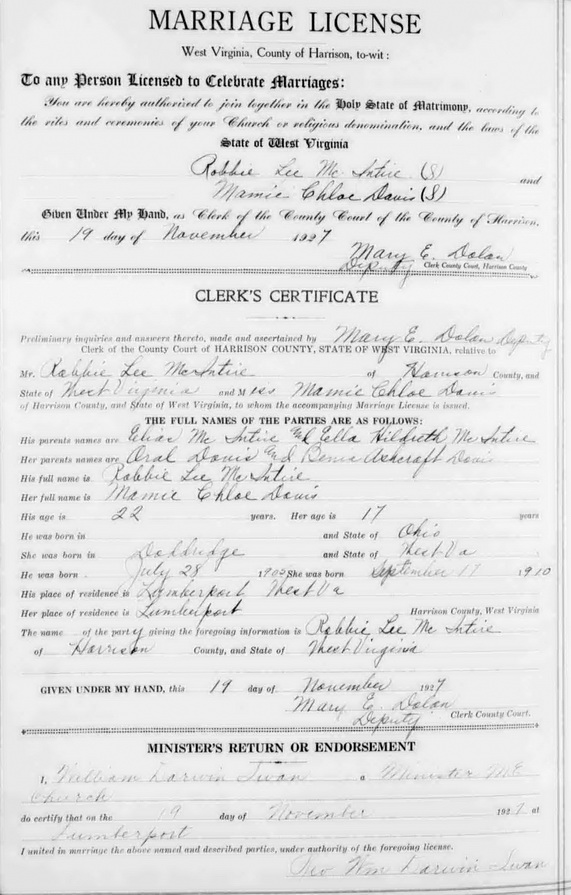 MARRIAGE LICENSE
West Virginia, County of Harrison, to-wit:
To any Person Licensed to Celebrate Marriages:
You are hereby authorized to join together in the Holy State of Matrimony, according to
the rites and ceremonies of your Church or religious denomination, and the laws of the
State of West Virginia
Robbie Lee Mc Intire (S)
and
Mamie Chloe Davis (S)
Given Under My Hand, as Clerk of the County Court of the County of Harrison,
this 19 day of November 1927
Mary E. Dolan
Deputy Clerk County Court, Harrison County
CLERK'S CERTIFICATE
Preliminary inquiries and answers thereto, made and ascertained by Mary E. Dolan Deputy
Clerk of the County Court of HARRISON COUNTY, STATE OF WEST VIRGINIA, relative to
Mr. Robbie Lee McIntire of Harrison County, and
State of West Virginia and Miss Mamie Chloe Davis
of Harrison County, and State of West Virginia, to whom the accompanying Marriage License is issued.
THE FULL NAMES OF THE PARTIES ARE AS FOLLOWS:
His parents names are Elias Mc Intire And Ella Hildreth Mc Intire
Her parents names are Oral Davis And Ashcraft Davis
His full name is Robbie Lee Mc Intire
Her full name is Mamie Chloe Davis
His age is 22 years. Her age is 17 years
He was born in and State of Ohio
She was born in Doddridge and State of West Va
He was born July 28 1905 She was born September 17 1910
His place of residence is Lumberport West Va
Her place of residence is Lumberport Harrison County, West Virginia
The name of the party giving the foregoing information is Robbie Lee Mc Intire
of Harrison County, and State of West Virginia
GIVEN UNDER MY HAND, this 19 day of November 1927
Mary E. Dolan
Deputy Clerk County Court.
MINISTER'S RETURN OR ENDORSEMENT
I, William Darwin Swan a Minister M E
Church
do certify that on the 19 day of November 1927 at
Lumberport
I united in marriage the above named and described parties, under authority of the foregoing license.
Wm Darwin Swan